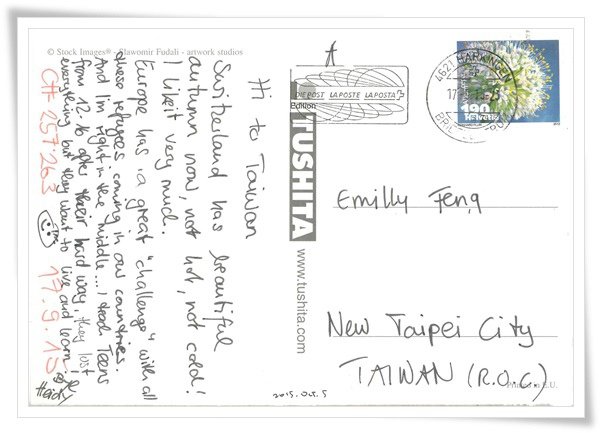 © Stock Images® - Slawomir Fudali - artwork studios
Hi to Taiwan
Switzerland has beautiful
autumn now, not hot, not cold!
I like it very much.
Europe has a great "challenge" with all
these refugees coming in our countries.
And I'm right in the middle... I teach Teens
from 12-16 after their hard way, they lost
everything but they want to live and learn!
Bye
Heidy
CH-257263
17.9.15
TUSHITA
www.tushita.com
Edition
DIE POST LA POSTE LA POSTA
4621 HÄRKINGEN
190
Helvetia
Emilly Feng
New Taipei City
TAIWAN (R.O.C)
2015. Oct. 5
Printed in E.U.